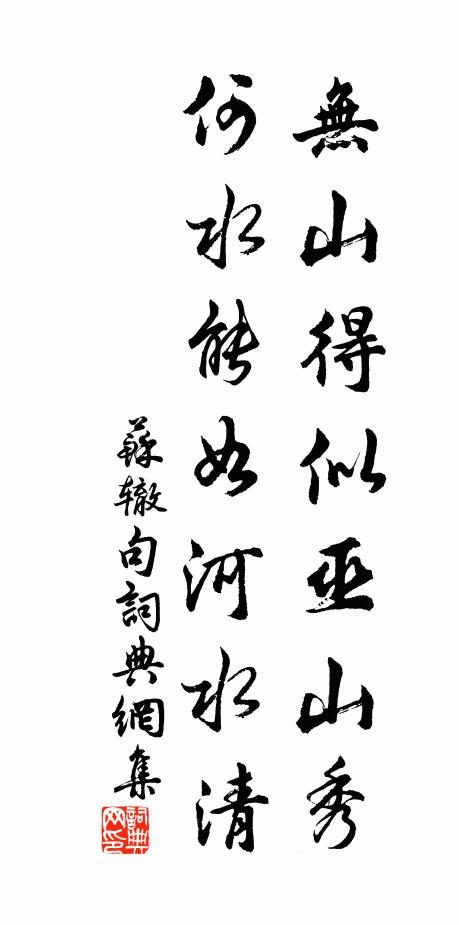 無山得似巫山秀
何水能如河水清
蘇辙句詞典網集
詞典
网印